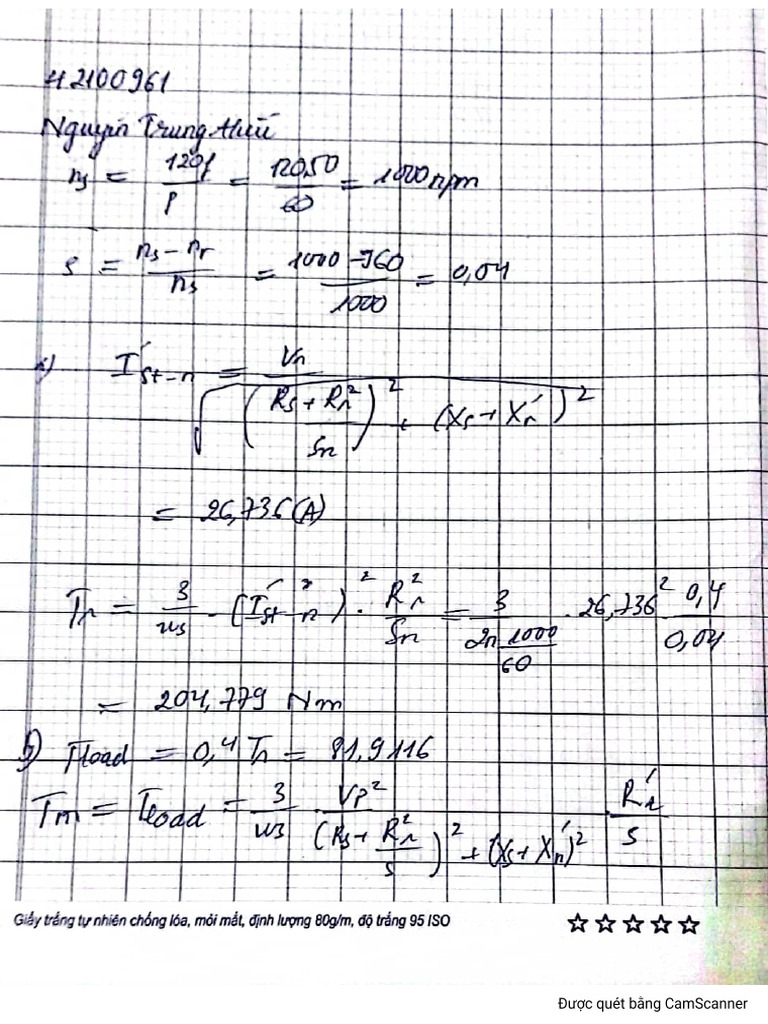 42100961
Nguyễn Trung Hiếu
ns = 120f / p = 120.50 / 60 = 1000 rpm
s = ns - nr / ns = 1000 - 960 / 1000 = 0,04
a) I'st-n = Vn / √((Rs + Rr² / sn)² + (Xs + X'r)²)
= 26,736 (A)
Tn = 3 / ws . (I'st-n)² . Rr² / sn = 3 / 2π 1000/60 . 26,736² 0,4 / 0,04
= 204,779 Nm
b) Tload = 0,4 Tn = 81,9116
Tm = Tload = 3 / ws Vp² / (Rs + Rr² / s)² + (Xs + X'r)² . R'r / s
Giấy trắng tự nhiên chống lóa, mỏi mắt, định lượng 80g/m, độ trắng 95 ISO
Được quét bằng CamScanner